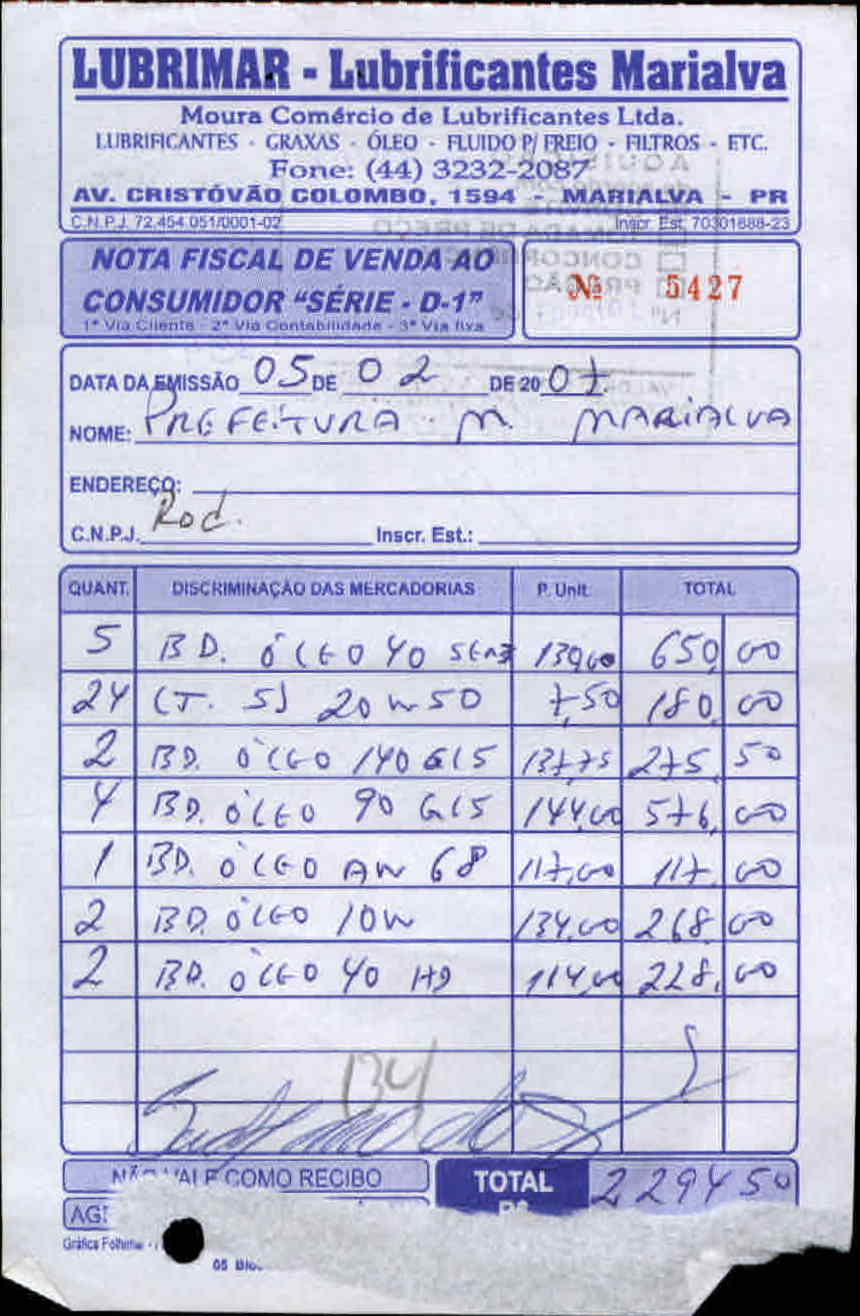 LUBRIMAR - Lubrificantes Marialva
Moura Comércio de Lubrificantes Ltda.
LUBRIFICANTES - GRAXAS - ÓLEO - FLUIDO P/ FREIO - FILTROS - ETC.
Fone: (44) 3232-2087
AV. CRISTÓVÃO COLOMBO, 1594 - MARIALVA - PR
C.N.P.J. 72.454.051/0001-02 Inscr. Est. 70301688-23
NOTA FISCAL DE VENDA AO
CONSUMIDOR "SÉRIE - D-1"
1ª Via Cliente - 2ª Via Contabilidade - 3ª Via fixa
Nº 5427
DATA DA EMISSÃO 05 DE 02 DE 2007
NOME: PREFEITURA M. MARIALVA
ENDEREÇO:
Rod.
C.N.P.J. Inscr. Est.:
QUANT. DISCRIMINAÇÃO DAS MERCADORIAS P. Unit. TOTAL
5 BD. ÓLEO 40 130,00 650,00
24 LT. SJ 20W50 7,50 180,00
2 BD. ÓLEO 140 GL5 137,75 275,50
4 BD. ÓLEO 90 GL5 144,00 576,00
1 BD. ÓLEO AW 68 117,00 117,00
2 BD. ÓLEO 10W 134,00 268,00
2 BD. ÓLEO 40 HD 114,00 228,00
134
NÃO VALE COMO RECIBO
TOTAL R$ 229450
Gráfica
05